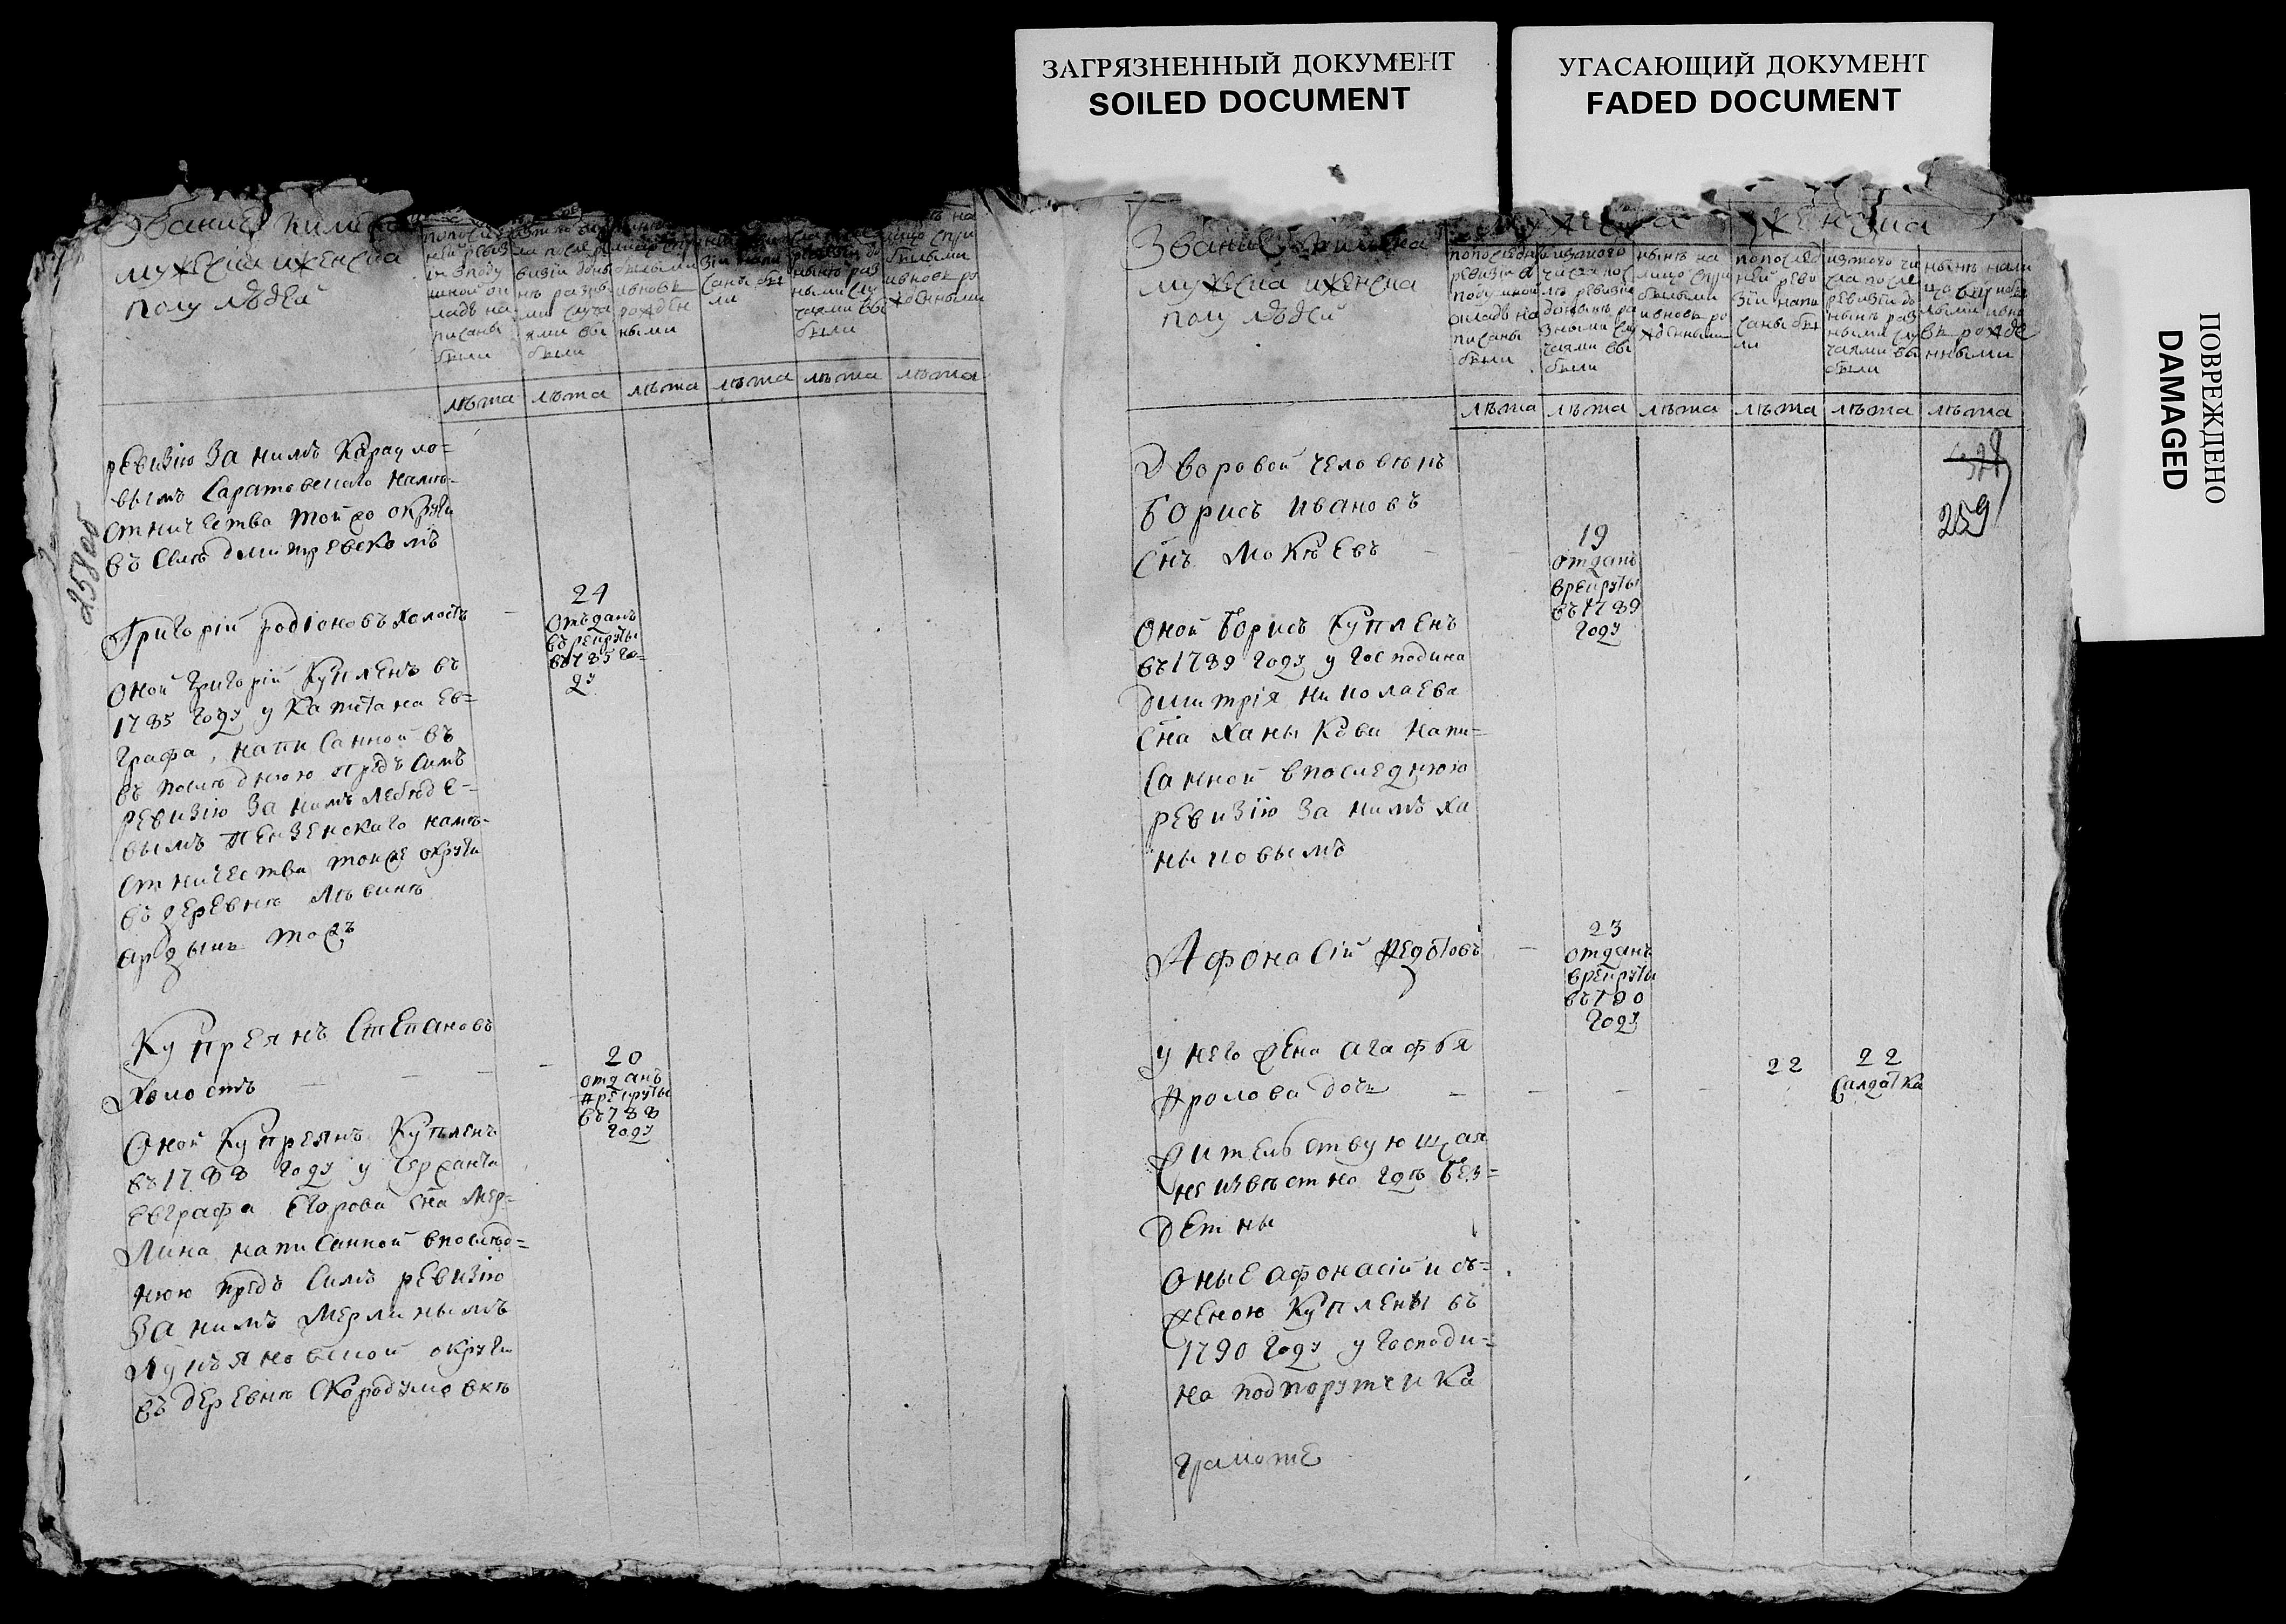 ЗАГРЯЗНЕННЫЙ ДОКУМЕНТ
SOILED DOCUMENT
УГАСАЮЩИЙ ДОКУМЕНТ
FADED DOCUMENT
ПОВРЕЖДЕНО
DAMAGED
258об
мужеска иженска
полу людей
лѣта лѣта лѣта лѣта лѣта лѣта
ревизию За нимъ Карауло=
вымъ Саратовскаго намѣ-
стничества той же округи
въ Селѣ дмитревскомъ
Григорій родіоновъ холостъ
24
отъданъ
въ рекруты
въ 785 го=
ду
Оной григорій Купленъ въ
1785 году у Капитана Ев=
графа, написанной въ
въ послѣднюю предъ Симъ
ревизію За нимъ лебѣде=
вымъ Пензенскаго намѣ-
стничества тойже округи
въ деревнѣ
тожъ
Купреянъ Степановъ
холостъ
20
отданъ
в рекруты
въ 788
году
Оной Купреянъ Купленъ
въ 1788 году у Сержанта
Евграфа Егорова сна Мер=
лина написанной впослѣд=
нюю предъ Симъ ревизію
За нимъ Мерлинымъ
Лукьяновской округи
въ деревнѣ Скородумовкѣ
мужеска женска
Звание
мужеска иженска
полу людей
попоследней
ревизіи в
подушной
окладъ на
писаны
были
изтого
числа пос
лѣ ревизіи
донынѣ ра
зными слу
чаями вы
были
нынѣ на
лицо спри
былыми
ивновь ро
жденными
попослед
ней реви
зіи напи
саны бы
ли
изтого чи
сла после
ревизіи до
нынѣ раз
ными слу
чаями вы
были
лѣта лѣта лѣта лѣта лѣта лѣта
259
Дворовой человѣкъ
борисъ ивановъ
снъ мокѣевъ
19
отданъ
врекруты
въ 1789
году
Оной борисъ Купленъ
въ 1789 году у господина
Дмитрія николаева
сна ханыкова напи=
санной впоследнюю
ревизію За нимъ ха
ныковымъ
Афонасій федотовъ
23
отданъ
врекруты
въ 790
году
у него жена агафья
фролова дочь
22 22
Салдатка
жительствующая
неизвѣстно гдѣ без=
детны
Оные афонасій и съ=
женою Куплены въ
1790 году у господи=
на подпорутчика